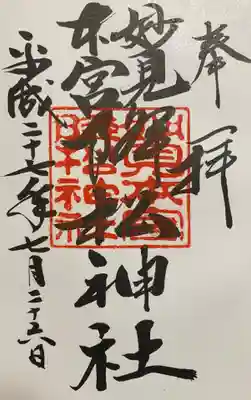 奉拝
妙見
本宮
降松神社
平成二十七年七月二十六日